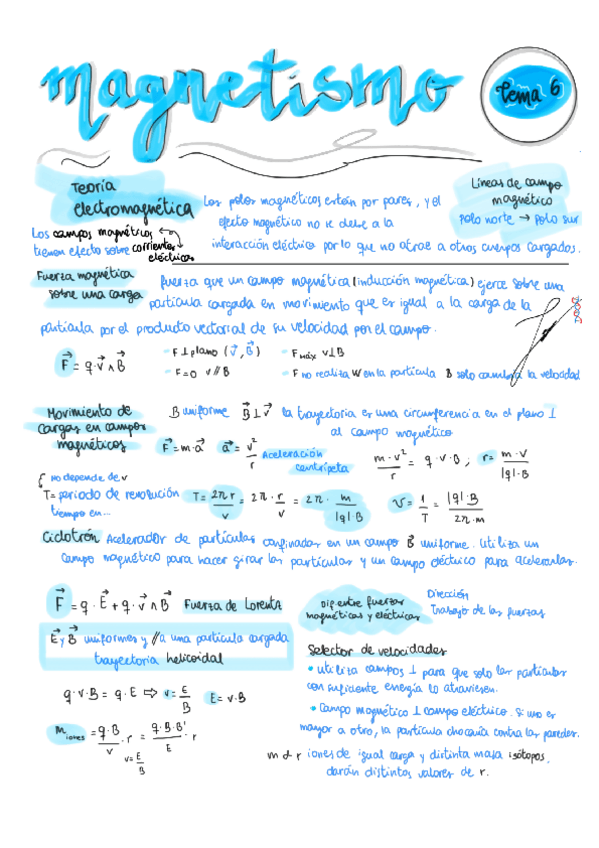 magnetismo
tema 6
Teoría
electromagnética
Los polos magnéticos están por pares, y el
efecto magnético no se debe a la
interacción eléctrica por lo que no atrae a otros cuerpos cargados.
Líneas de campo
magnético
polo norte → polo sur
Los campos magnéticos
tienen efecto sobre corrientes
eléctricas
Fuerza magnética
sobre una carga
fuerza que un campo magnético (inducción magnética) ejerce sobre una
partícula cargada en movimiento que es igual a la carga de la
partícula por el producto vectorial de su velocidad por el campo.
F⃗ = q·v⃗ ∧ B⃗
- F ⊥ plano (v⃗, B⃗)
- F=0 v // B
- F máx v⊥B
- F no realiza W en la partícula B solo cambia la velocidad
Movimiento de
cargas en campos
magnéticos
B uniforme B⃗ ⊥ v⃗ la trayectoria es una circunferencia en el plano ⊥
al campo magnético
F⃗ = m·a⃗ a⃗ = v²/r Aceleración
centrípeta
m·v²/r = q·v·B ; r = m·v/|q|·B
no depende de v
T = periodo de revolución
tiempo en...
T = 2πr/v = 2π · r/v = 2π · m/|q|·B
ν = 1/T = |q|·B/2π·m
Ciclotrón Acelerador de partículas confinadas en un campo B⃗ uniforme. Utiliza un
campo magnético para hacer girar las partículas y un campo eléctrico para acelerarlas.
F⃗ = q·E⃗ + q·v⃗ ∧ B⃗ Fuerza de Lorentz
E⃗ y B⃗ uniformes y // a una partícula cargada
trayectoria helicoidal
q·v·B = q·E ⇨ v = E/B E = v·B
m iones = q·B/v · r = q·B·B'/E · r
v = E/B
Dif entre fuerzas
magnéticas y eléctricas
Dirección
Trabajo de las fuerzas
Selector de velocidades
• utiliza campos ⊥ para que solo las partículas
con suficiente energía lo atraviesen.
• Campo magnético ⊥ campo eléctrico. Si uno es
mayor a otro, la partícula chocaría contra las paredes.
m α r iones de igual carga y distinta masa isótopos,
darán distintos valores de r.